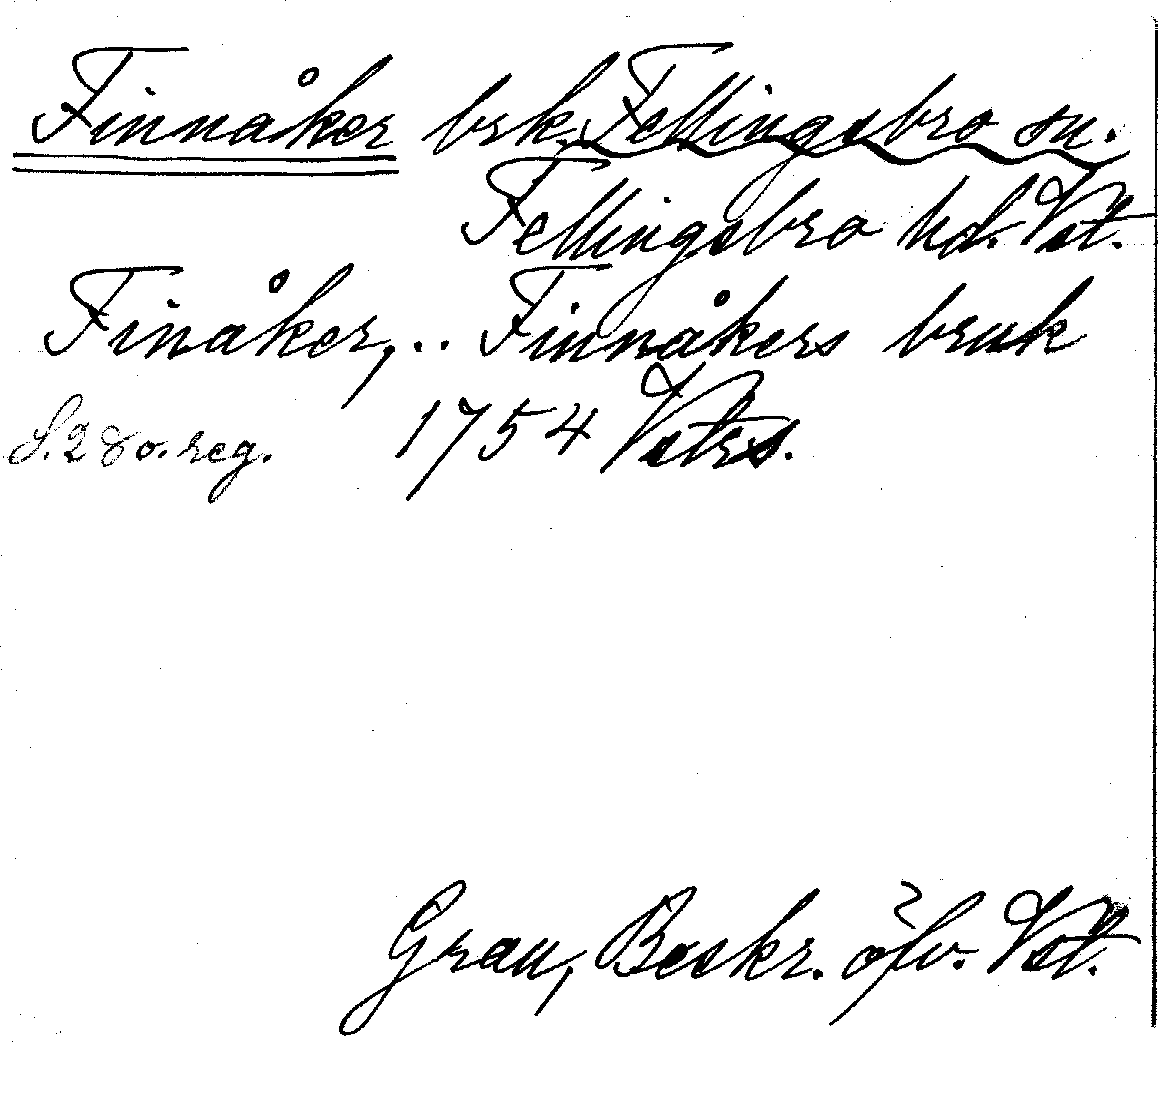 Finnåker brk. Fellingsbro sn.
Fellingsbro hd. Vst.
Finåker, .. Finnåkers bruk
S. 280. reg. 1754 Vstrs.
Grau, Beskr. öfv. Vst.